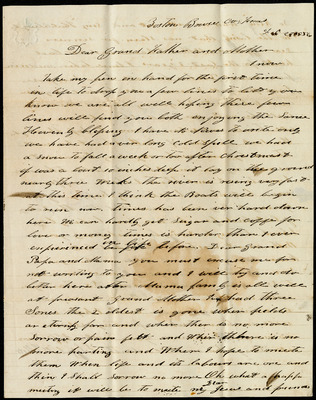 Boston Bowie Co Texas
Feb
Dear Grand Father and Mother
I now
take my pen in hand for the first time
in life to drop you a few lines to let you
know we are all well hoping these few
lines will find you both enjoying the same
Heavenly blessing I have no News to write only
we have had a very long Cold Spell we had
a snow to fall a week or two after Christmast
it was a bout 10 inches deep it lay on the ground
nearly three Weeks the river is rising very fast
at this time I think the Boats will begin
to run now times has been very hard down
here We can hardly get Sugar and coffee for
love or money times is harder than I ever
experienced in my life before Dear Grand
Papa and Mama you must excuse me for
not writing to you and I will try and do
better here after Mama family is all well
at present Grand Mother has had three
Sones the 2 oldest is gone where fields
are and where there is no more
Sorrow or pain felt and Where there is no
more parting and Where I hope to meete
them When life and its labours are one and
then I Shall Sorrow no more Oh what a happy
meeting it will be to meete my Dear and friends